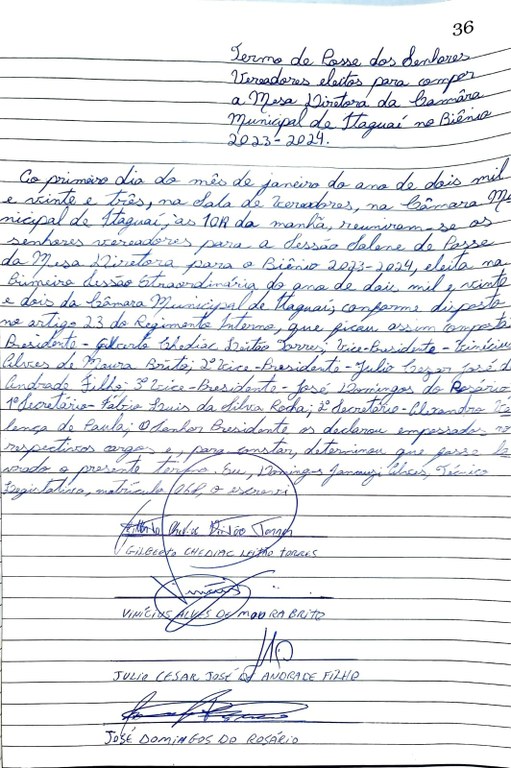 36
Termo de Posse dos Senhores
Vereadores eleitos para compor
a Mesa Diretora da Camâra
Municipal de Itaguaí no Biênio
2023-2024.
Ao primeiro dia do mês de janeiro do ano de dois mil
e vinte e três, na sala de vereadores, na Câmara Mu
nicipal de Itaguaí, às 10h da manhã, reuniram-se os
senhores vereadores para a sessão solene de Posse
da Mesa Diretora para o Biênio 2023-2024, eleita na
Primeira Sessão Extraordinária do ano de dois mil e vinte
e dois da Câmara Municipal de Itaguaí, conforme disposto
no artigo 23 do Regimento Interno, que ficou assim composta:
Presidente - Gilberto Chediac Leitão Torres; Vice-Presidente - Vinícius
Alves de Moura Brito; 2º Vice-Presidente - Julio Cezar José de
Andrade Filho; 3º Vice-Presidente - José Domingos do Rosário;
1º Secretário - Fábio Luis da Silva Rocha; 2º Secretário - Alexandro Va
lença de Paula; O Senhor Presidente os declarou empossados no
respectivos cargos e, para constar, determinou que fosse la
vrado o presente termo. Eu, Domingos Jannuzi Alves, Técnico
Legislativo, matrícula o escrevi
Gilberto Chediac Leitão Torres
GILBERTO CHEDIAC LEITÃO TORRES
Vinícius
VINÍCIUS ALVES DE MOURA BRITO
JULIO CESAR JOSÉ DE ANDRADE FILHO
JOSÉ DOMINGOS DO ROSÁRIO